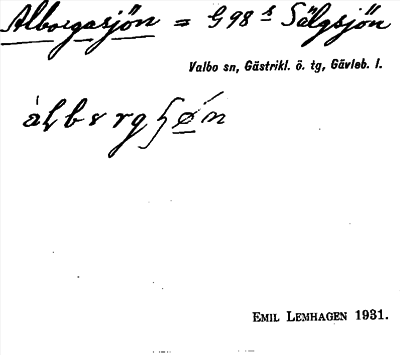 Alborgasjön = G 98 s Sälgsjön
Valbo sn, Gästrikl. ö. tg, Gävleb. l.
EMIL LEMHAGEN 1931.